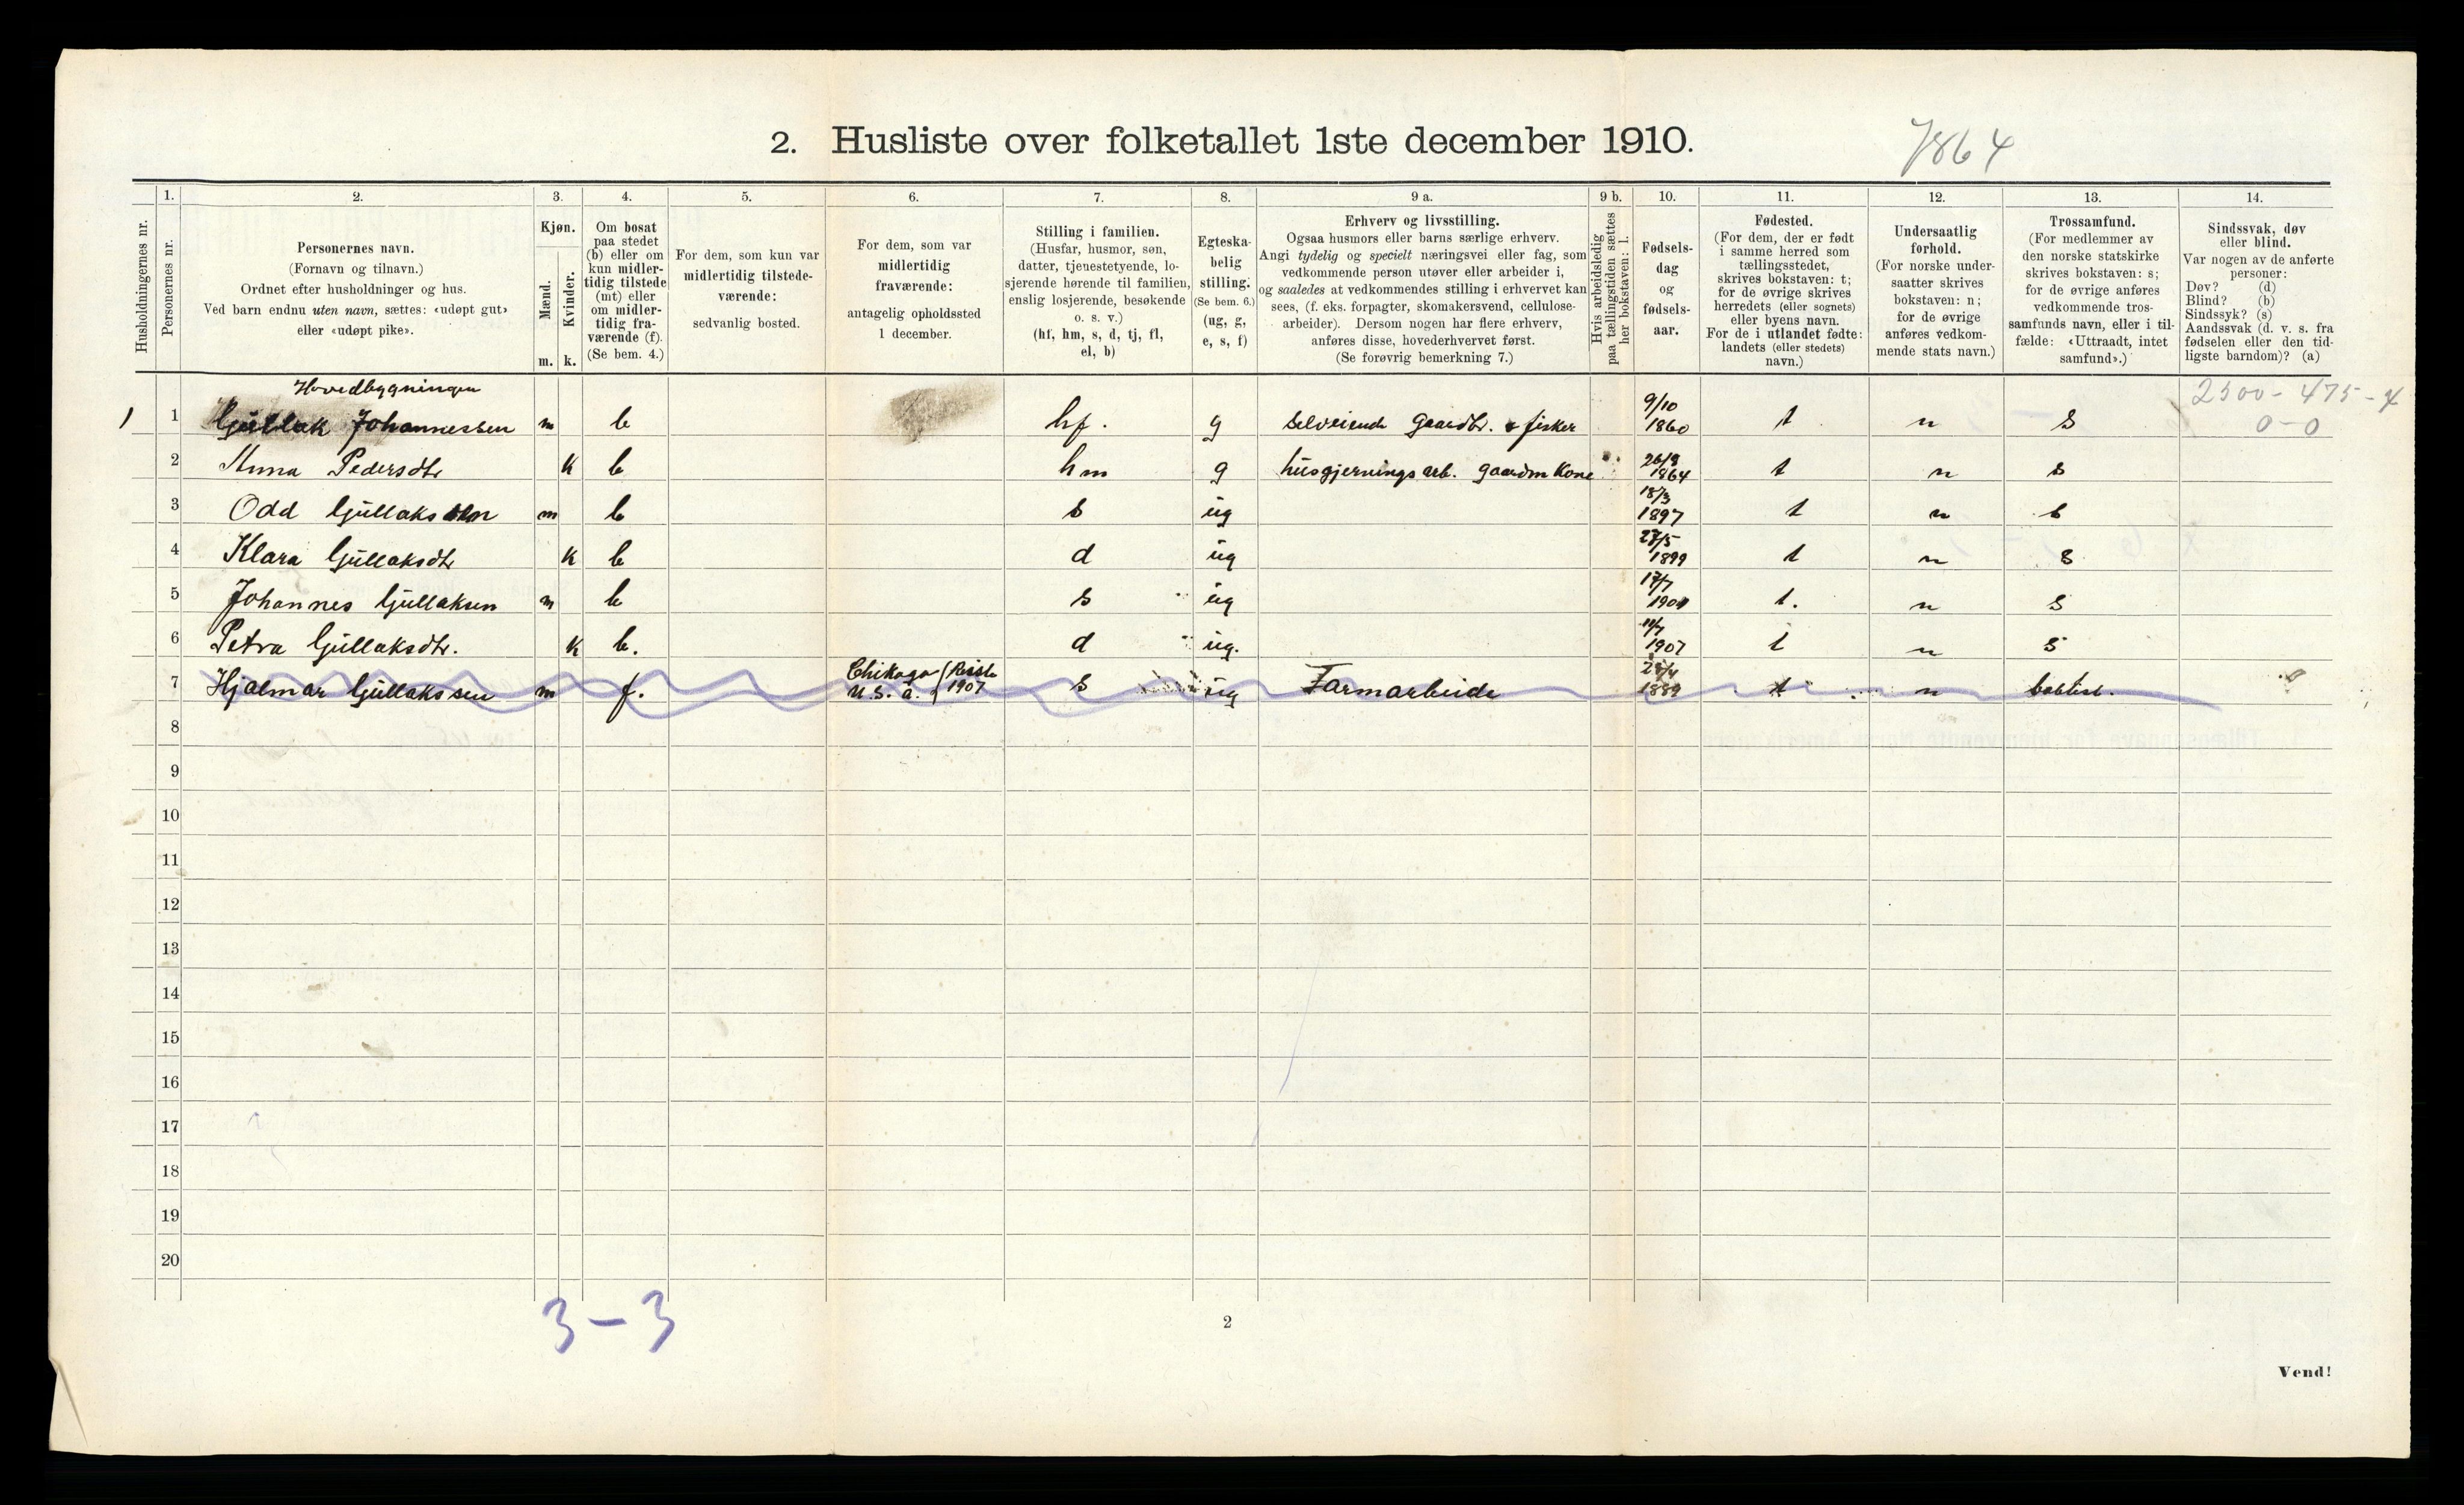 2. Husliste over folketallet 1ste december 1910.
7864
Husholdningernes nr.
1.
Personernes nr.
2.
Personernes navn.
(Fornavn og tilnavn.)
Ordnet efter husholdninger og hus.
Ved barn endnu uten navn, sættes: «udøpt gut»
eller «udøpt pike».
3.
Kjøn.
Mænd.
m.
Kvinder.
k.
4.
Om bosat
paa stedet
(b) eller om
kun midler-
tidig tilstede
(mt) eller
om midler-
tidig fra-
værende (f).
(Se bem. 4.)
5.
For dem, som kun var
midlertidig tilstede-
værende:
sedvanlig bosted.
6.
For dem, som var
midlertidig
fraværende:
antagelig opholdssted
1 december.
7.
Stilling i familien.
(Husfar, husmor, søn,
datter, tjenestetyende, lo-
sjerende hørende til familien,
enslig losjerende, besøkende
o. s. v.)
(hf, hm, s, d, tj, fl,
el, b)
8.
Egteska-
belig
stilling.
(Se bem. 6.)
(ug, g,
e, s, f)
9 a.
Erhverv og livsstilling.
Ogsaa husmors eller barns særlige erhverv.
Angi tydelig og specielt næringsvei eller fag, som
vedkommende person utøver eller arbeider i,
og saaledes at vedkommendes stilling i erhvervet kan
sees, (f. eks. forpagter, skomakersvend, cellulose-
arbeider). Dersom nogen har flere erhverv,
anføres disse, hovederhvervet først.
(Se forøvrig bemerkning 7.)
9 b.
Hvis arbeidsledig
paa tællingstiden sættes
her bokstaven: l.
10.
Fødsels-
dag
og
fødsels-
aar.
11.
Fødested.
(For dem, der er født
i samme herred som
tællingsstedet,
skrives bokstaven: t;
for de øvrige skrives
herredets (eller sognets)
eller byens navn.
For de i utlandet fødte:
landets (eller stedets)
navn.)
12.
Undersaatlig
forhold.
(For norske under-
saatter skrives
bokstaven: n;
for de øvrige
anføres vedkom-
mende stats navn.)
13.
Trossamfund.
(For medlemmer av
den norske statskirke
skrives bokstaven: s;
for de øvrige anføres
vedkommende tros-
samfunds navn, eller i til-
fælde: «Uttraadt, intet
samfund».)
14.
Sindssvak, døv
eller blind.
Var nogen av de anførte
personer:
Døv? (d)
Blind? (b)
Sindssyk? (s)
Aandssvak (d. v. s. fra
fødselen eller den tid-
ligste barndom)? (a)
Hovedbygningen
2500-475-4
0-0
1 1 Gjullak Johannessen m b hf. g selveiende gaardbr. & fisker 9/10 1860 t n s
2 Anna Pedersdtr k b hm g husgjernings arb. gaardm kone 26/9 1864 t n s
3 Odd Gjullaksen m b s ug 18/3 1897 t n s
4 Klara Gjullaksdtr k b d ug 27/5 1899 t n s
5 Johannes Gjullaksen m b s ug 17/7 1901 t. n s
6 Petra Gjullaksdtr. k b. d ug. 11/7 1907 t n s
7 Hjalmar Gjullakssen m f. Chikago U.S.a. Reiste 1907 s ug Farmarbeide 28/4 1889 t n babtist.
8
9
10
11
12
13
14
15
16
17
18
19
20
3-3
2
Vend!